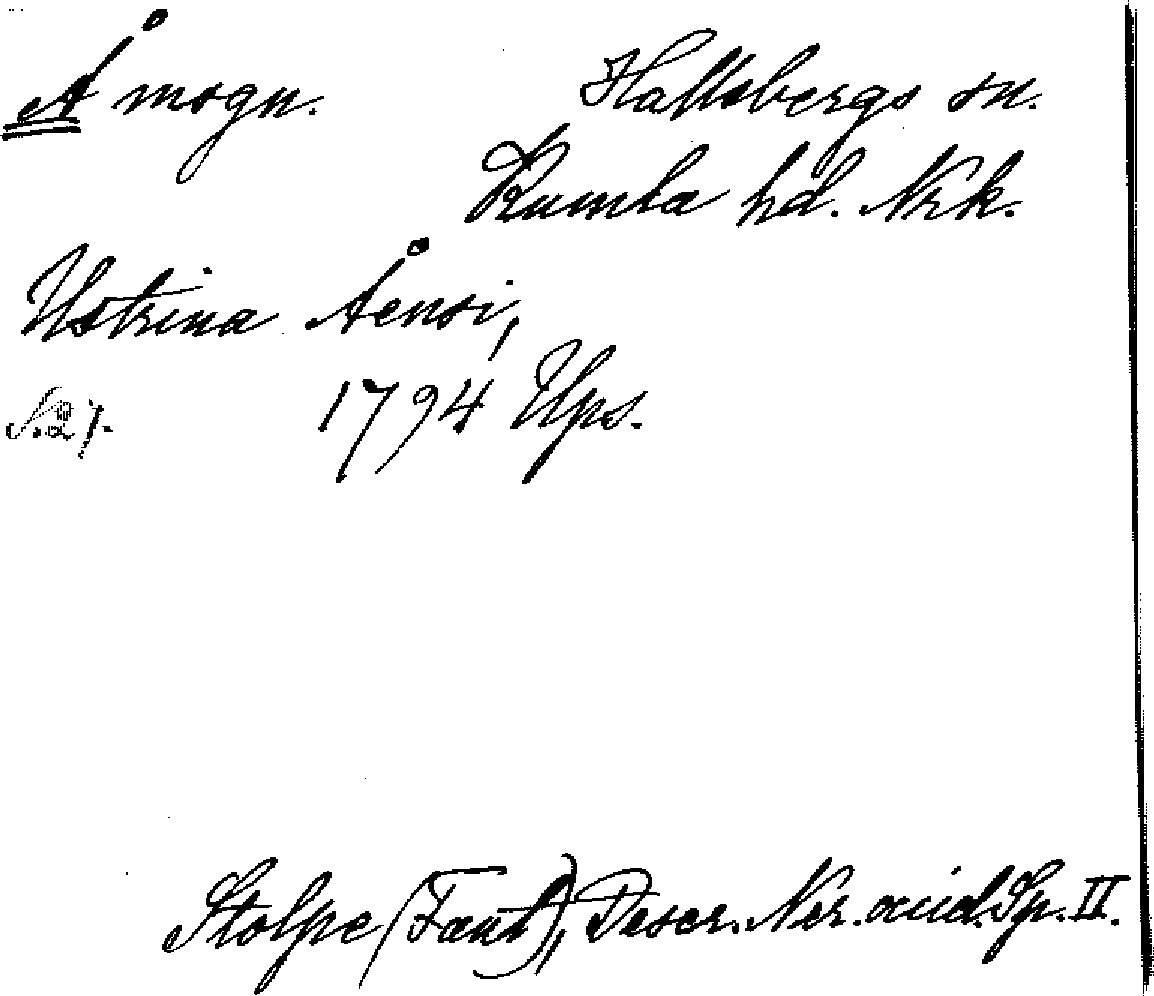 Å msgn. Hallsbergs sn.
Kumla hd. Nrk.
Ustrina Åensi,
S. 27. 1794 Ups.
Stolpe (Fant), Descr. Ner. merid. Sp. II.